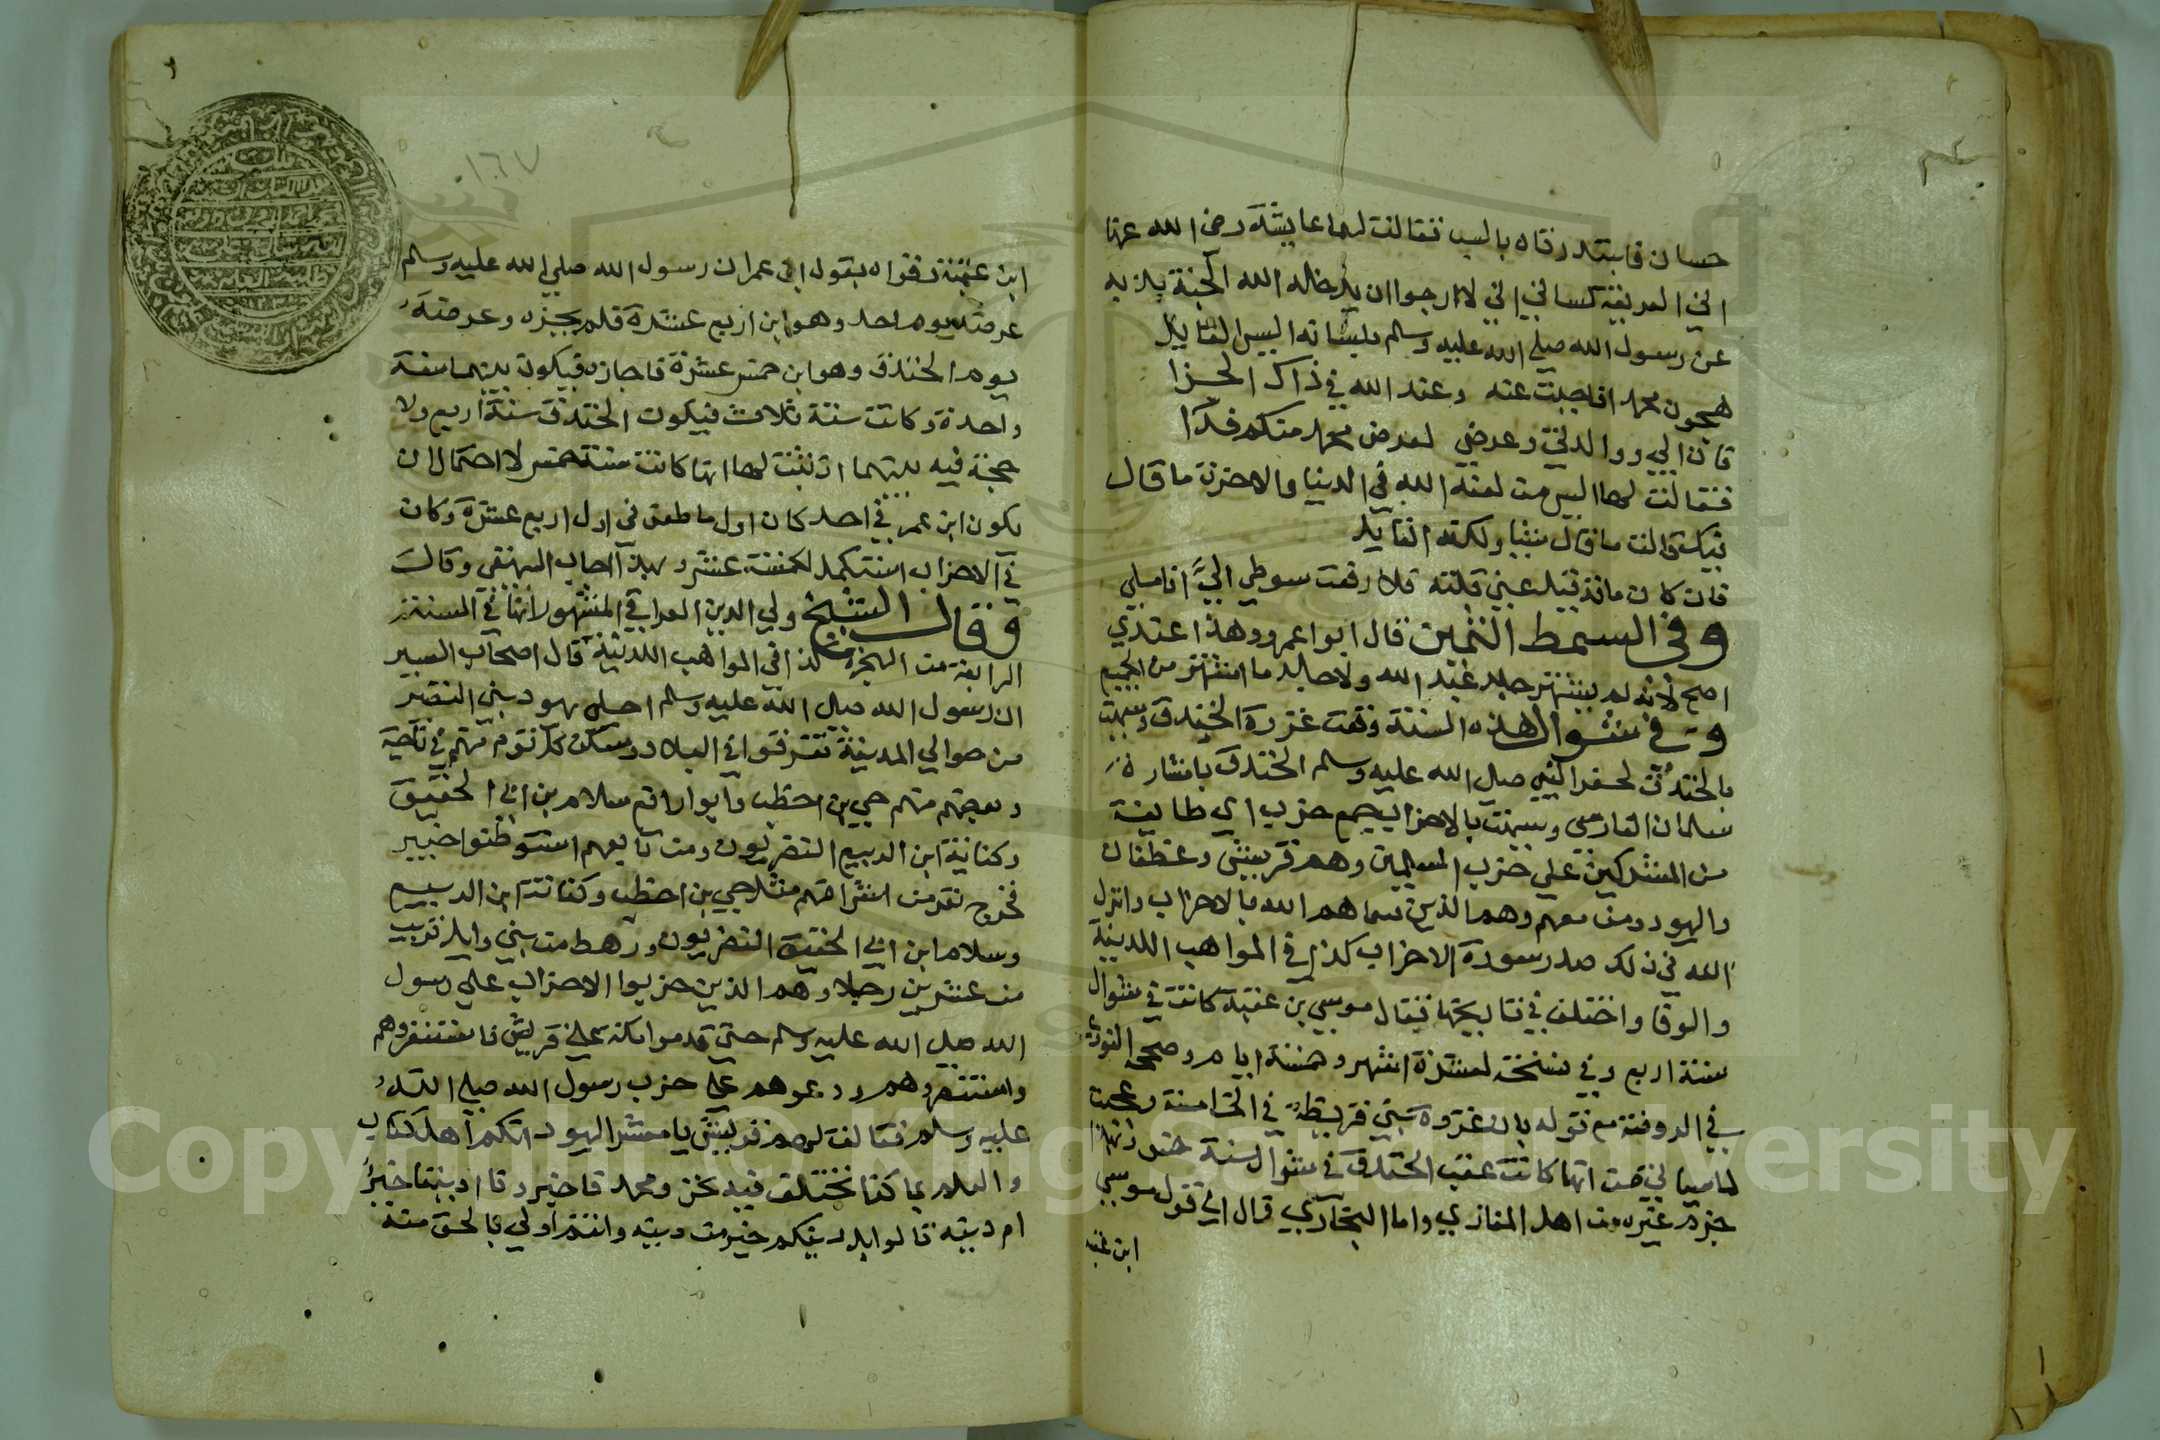 حسان فابتدرتاه بالسب فقالت لهما عايشة رضى الله عنها
الي الفريقة كساني اني لاارجوا ان يدخله الله الجنة بذبه
عن رسول الله صلى الله عليه وسلم بلسانه اليس القايل
هجوت محمدا فاجبت عنه وعند الله في ذاك الجزا
فان ابي ووالدتي وعرضي لعرض محمد منكم فدآا
فقالت لها اليس من لعنه الله في الدنيا والاخرة ما قال
فيك قالت ما قال شيا ولكنه القايل
فان كان ما قد قيل عني قلته فلا رفعت سوطي اليَّ اناملي
وفي السمط الثمين قال ابو اعمر وهذا عندي
اصح لانه لم يشتهر جلد عبد الله ولا جلد ما اشتهر من الجميع
و في شوال هذه السنة وقعت غزوة الخندق وسميت
بالخندق لحفر النبي صلى الله عليه وسلم الخندق باشارة
سلمان الفارسي وسميت بالاحزاب جمع حزب اي طايفة
من المشركين علي حزب المسلمين وهم قريش وغطفان
واليهود ومن معهم وهم الذين سماهم الله بالاحزاب وانزل
الله في ذلك صدر سورة الاحزاب كذا في المواهب اللدنية
والوفا واختلف في تاريخها فقال موسى بن عقبة كانت في شوال
سنة اربع وفي نسخة لعشرة اشهر وخمسة ايام وصححه النووي
في الروضة مع قوله بان غزوة بني قريظة في الخامسة وعجيب
لما سياتي من انها كانت عقب الخندق في شوال سنة خمس وبهذا
جزم غيره من اهل المغازي واما البخاري قال الي قول موسى
ابن عقبة
ابن عقبة وقواه بقول ابن عمران رسول الله صلي الله عليه وسلم
عرضه يوم احد وهو ابن اربع عشرة فلم يجزه وعرضه
يوم الخندق وهو ابن خمس عشرة فاجازه فيكون بينهما سنة
واحدة وكانت سنة ثلاث فيكون الخندق سنة اربع ولا
حجة فيه بينهما اذ ثبت لها انها كانت سنة خمس لا احتمال ان
يكون ابن عمر في احد كان اول ما طعن في اول اربع عشرة وكان
في الاحزاب استكمل الخمسة عشر وبهذا اجاب البيهقي وقال
وقال الشيخ ولي الدين العراقي المشهور انها في السنة
الرابعة من الهجرة كذا في المواهب اللدنية قال اصحاب السير
ان رسول الله صلى الله عليه وسلم اجلى يهود بني النضير
من حوالي المدينة تفرقوا في البلاد وسكن كل قوم منهم في ناحية
وبعضهم منهم حيي بن احطب وابو رافع سلام بن ابي الحقيق
وكنانة ابن الربيع النضريون ومن تابعهم استوطنوا خيبر
فخرج نفر من اشرافهم مثل حيي بن احطب وكنانة ابن الربيع
وسلام ابن ابي الحقيق النضريون ورهط من بني وايل قريب
من عشرين رجلا وهم الذين حزبوا الاحزاب علي رسول
الله صلى الله عليه وسلم حتى قدموا مكة على قريش فاستنفروهم
واستنصروهم ودعوهم على حزب رسول الله صلى الله
عليه وسلم فقالت لهم قريش يا معشر اليهود انكم اهل كتاب
والعلم بما كنا نختلف فيه نحن ومحمد فاخبرونا اديننا خير
ام دينه قالوا بل دينكم خير من دينه وانتم اولي بالحق منه
١٦٧
Copyright © King Saud University